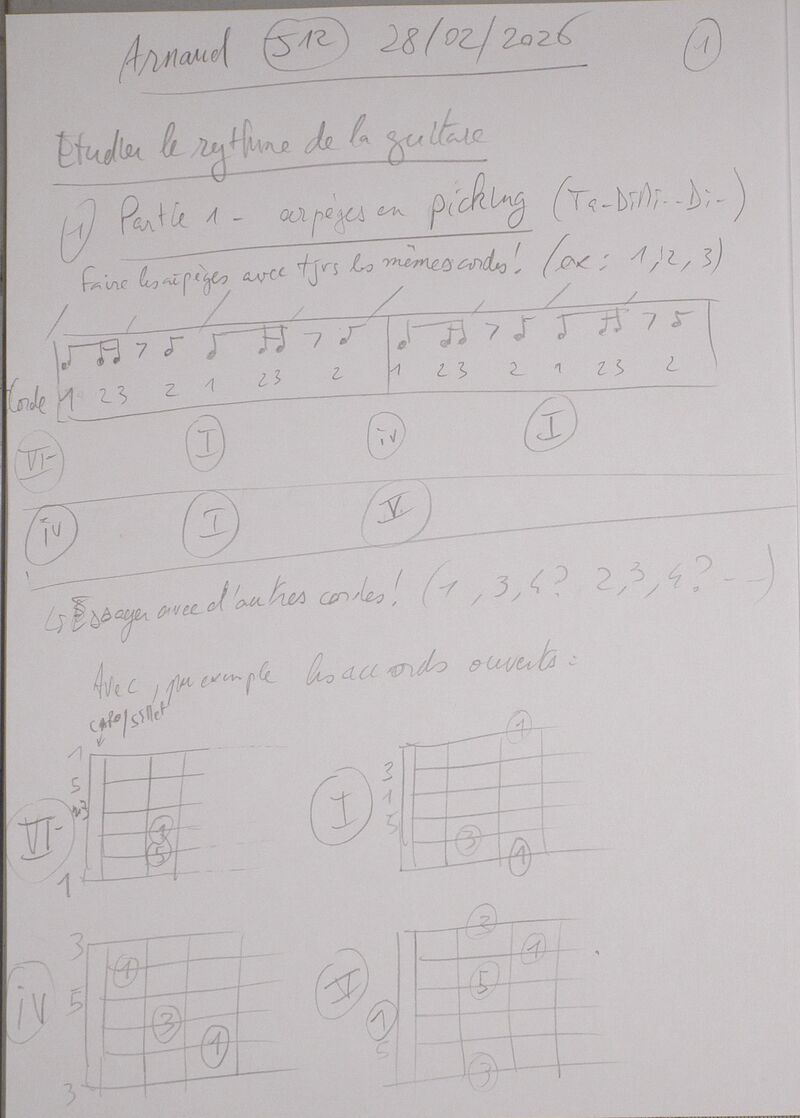 Arnaud 512 28/02/2026 1
Etudier le rythme de la guitare
1 Partie 1 - arpèges en picking (Ta-DiDi--Di-)
Faire les arpèges avec tjrs les mêmes cordes! (ex: 1, 2, 3)
Corde 1 23 2 1 23 2 1 23 2 1 23 2
VI- I iv I
iv I V
↳ Essayer avec d'autres cordes! (1, 3, 4? 2, 3, 4? --)
Avec, par exemple les accords ouverts:
capo/sillet
VI- 1 5 b3 1 1 5
I 1 3 1 5 3 1
iv 3 1 5 3 1 3
V 3 1 5 1 5 3